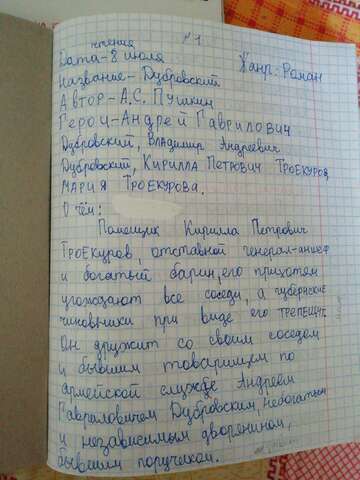 чтения №1
Дата-8 июля Жанр: Роман
Название- Дубровский
Автор-А.С. Пушкин
Герои-Андрей Гаврилович
Дубровский, Владимир Андреевич
Дубровский, Кирилла Петрович Троекуров,
Мария Троекурова.
О чём:
Помещик Кирилла Петрович
Троекуров, отставной генерал-аншеф
и богатый барин, его прихотям
угождают все соседи, а губернские
чиновники при виде его трепещут.
Он дружит со своим соседом
и бывшим товарищем по
армейской службе Андреем
Гавриловичем Дубровским, небогатым
и независимым дворянином,
бывшим поручиком.